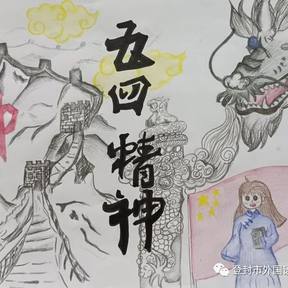 五四精神
登封市外国